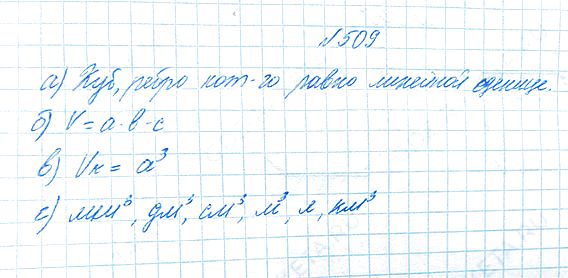 №509
а) Куб, ребро кот-го равно линейной еденице.
б) V = a · b · c
в) Vк = a³
г) мм³, дм³, см³, м³, л, км³